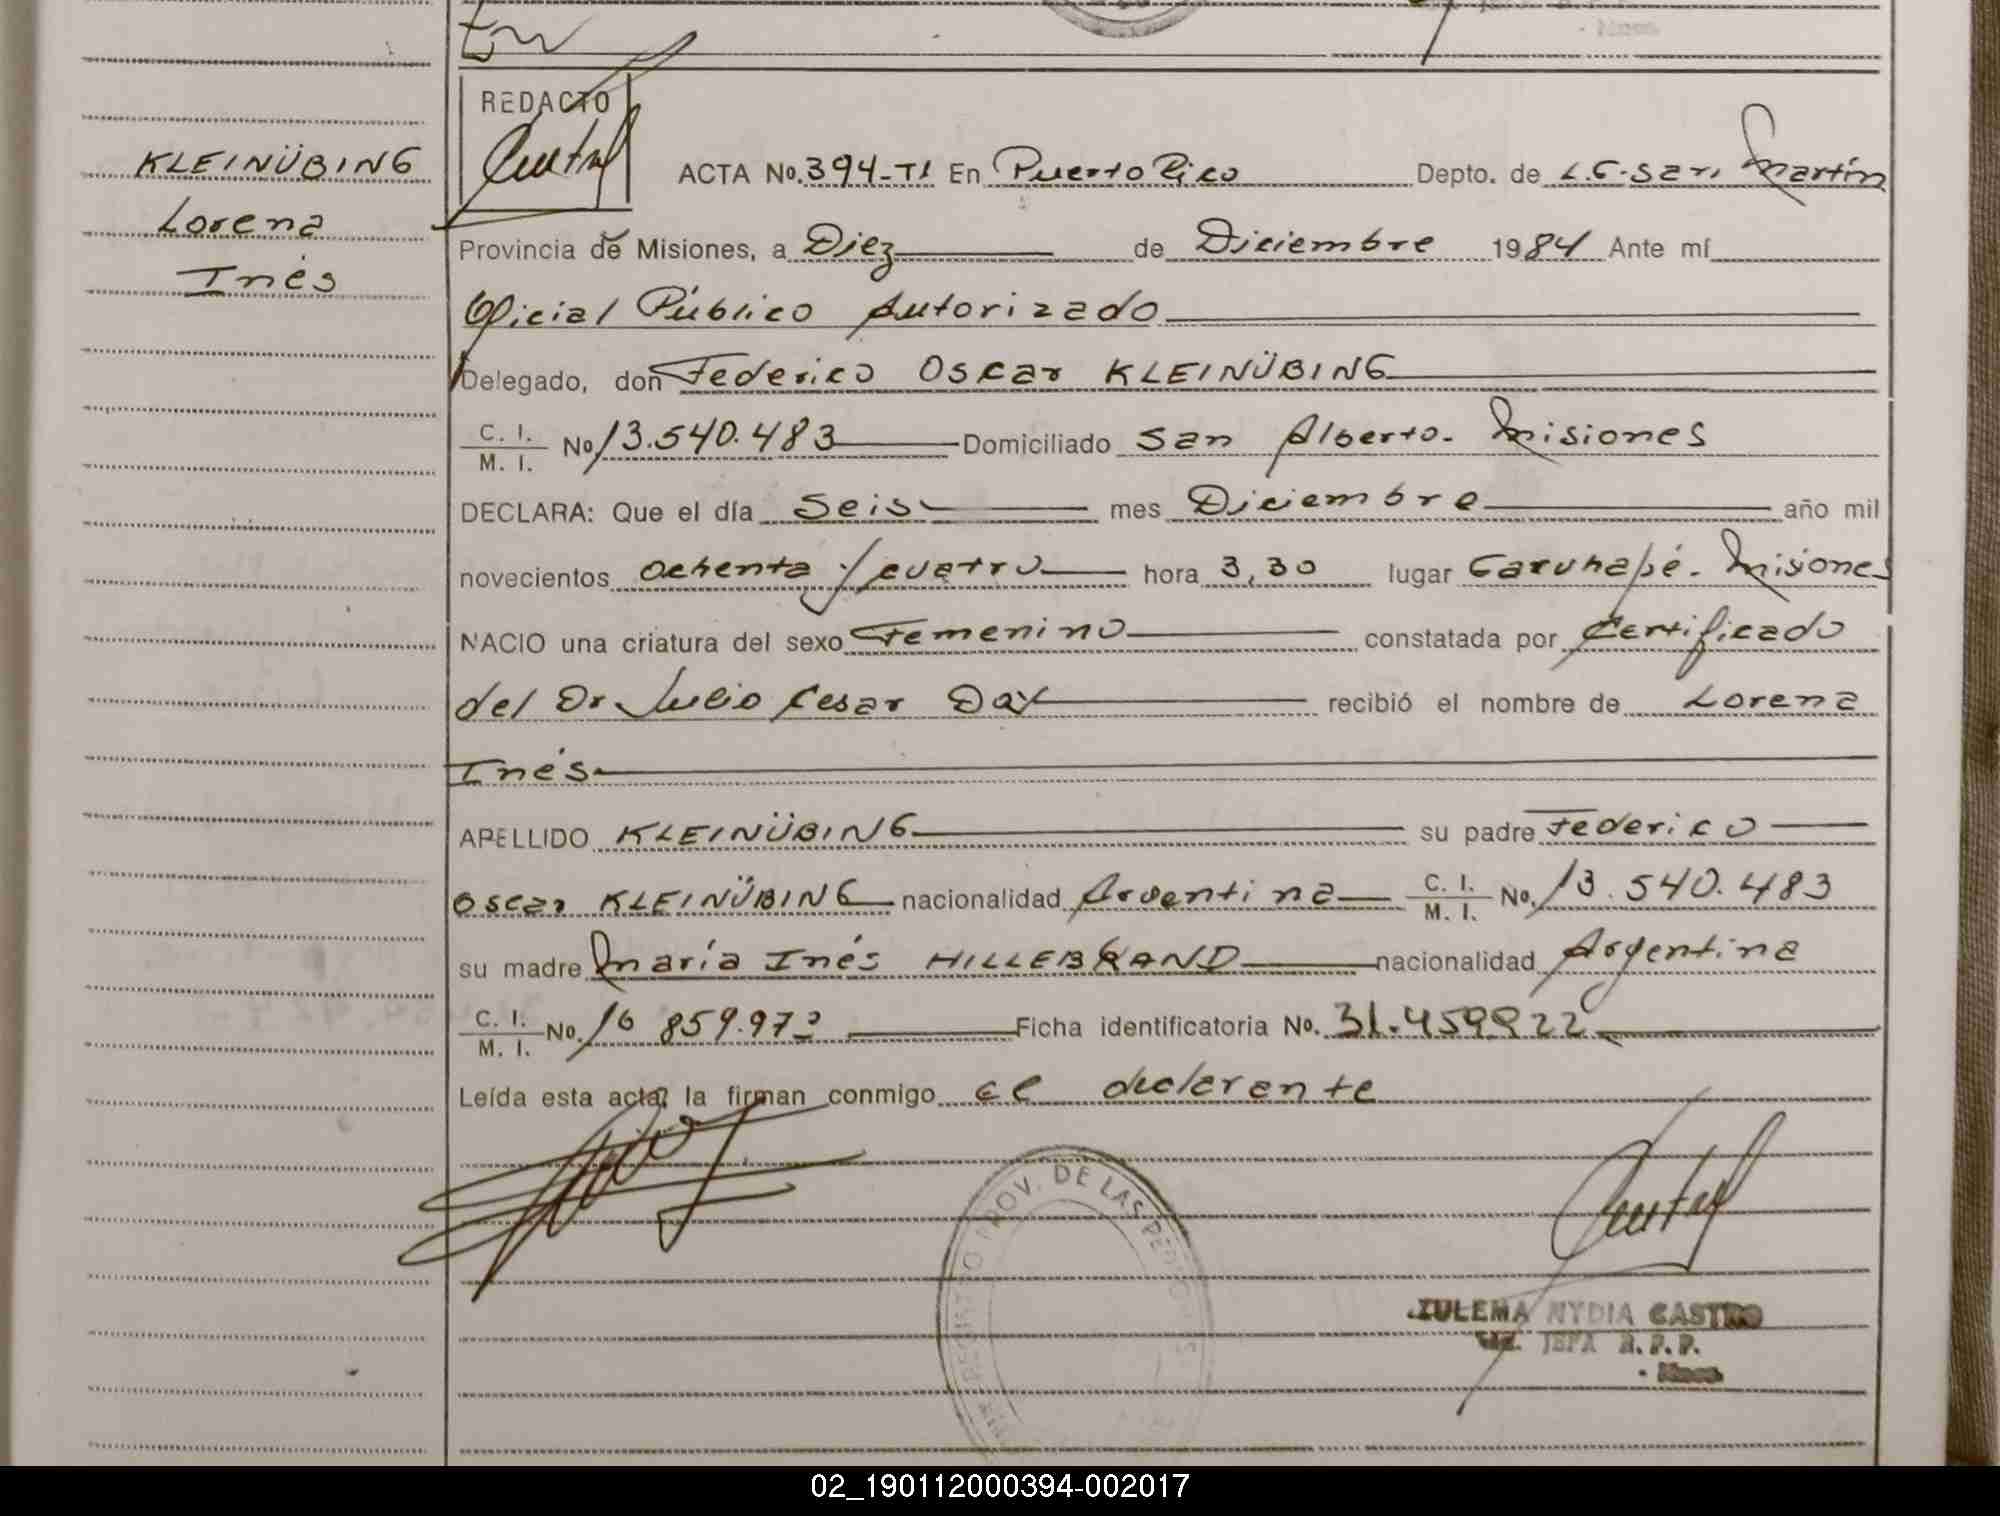 REDACTO
KLEINÜBING
Lorena
Inés
ACTA No. 394-T1 En Puerto Rico Depto. de L.G. San Martín
Provincia de Misiones, a Diez de Diciembre 1984 Ante mí
Oficial Público Autorizado
Delegado, don Federico Oscar KLEINÜBING
C. I. / M. I. No 13.540.483 Domiciliado San Alberto. Misiones
DECLARA: Que el día Seis mes Diciembre año mil
novecientos ochenta y cuatro hora 3,30 lugar Caruhapé. Misiones
NACIO una criatura del sexo Femenino constatada por Certificado
del Dr Julio Cesar Day recibió el nombre de Lorena
Inés
APELLIDO KLEINÜBING su padre Federico
Oscar KLEINÜBING nacionalidad Argentina C. I. / M. I. No. 13.540.483
su madre María Inés HILLEBRAND nacionalidad Argentina
C. I. / M. I. No. 16 859.973 Ficha identificatoria No. 31.459.922
Leída esta acta, la firman conmigo el declarante
PROV. DE LAS PERSONAS
ZULEMA NYDIA CASTRO
JEFA R.P.P.
Mnes.
02_190112000394-002017